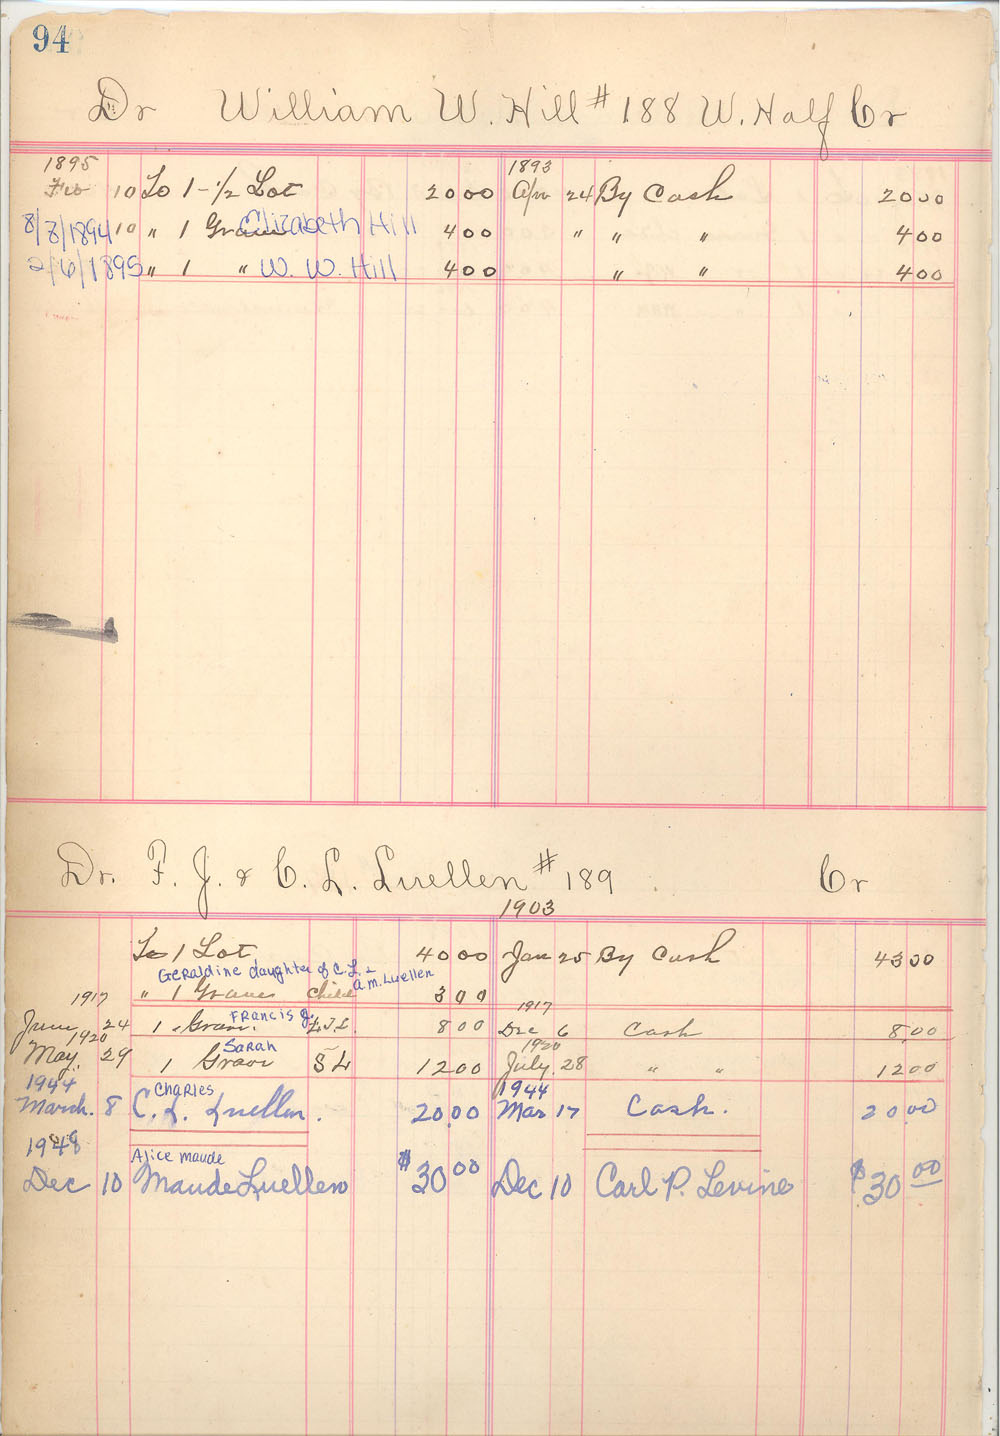 94
Dr William W. Hill # 188 W. Half Cr
1895 1893
Feb 10 To 1 - 1/2 Lot 20 00 Apr 24 By Cash 20 00
8/8/1894 10 " 1 Grave Elizabeth Hill 4 00 " " " 4 00
2/6/1895 " 1 " W. W. Hill 4 00 " " 4 00
Dr. F. J. & C. L. Luellen # 189 Cr
1903
To 1 Lot 40 00 Jan 25 By Cash 43 00
Geraldine daughter of C.L. & A.M. Luellen
" 1 Grave Child 3 00
1917 1917
Francis J.
June 24 1 Grave. F.J.L. 8 00 Dec 6 Cash 8.00
1920 1920
Sarah
May. 29 1 Grave S L 12 00 July 28 " " 12 00
1944 1944
Charles
March. 8 C. L. Luellen. 20.00 Mar 17 Cash. 20 00
1948
Alice Maude
Dec 10 Maude Luellen $30 00 Dec 10 Carl P. Levine $30 00